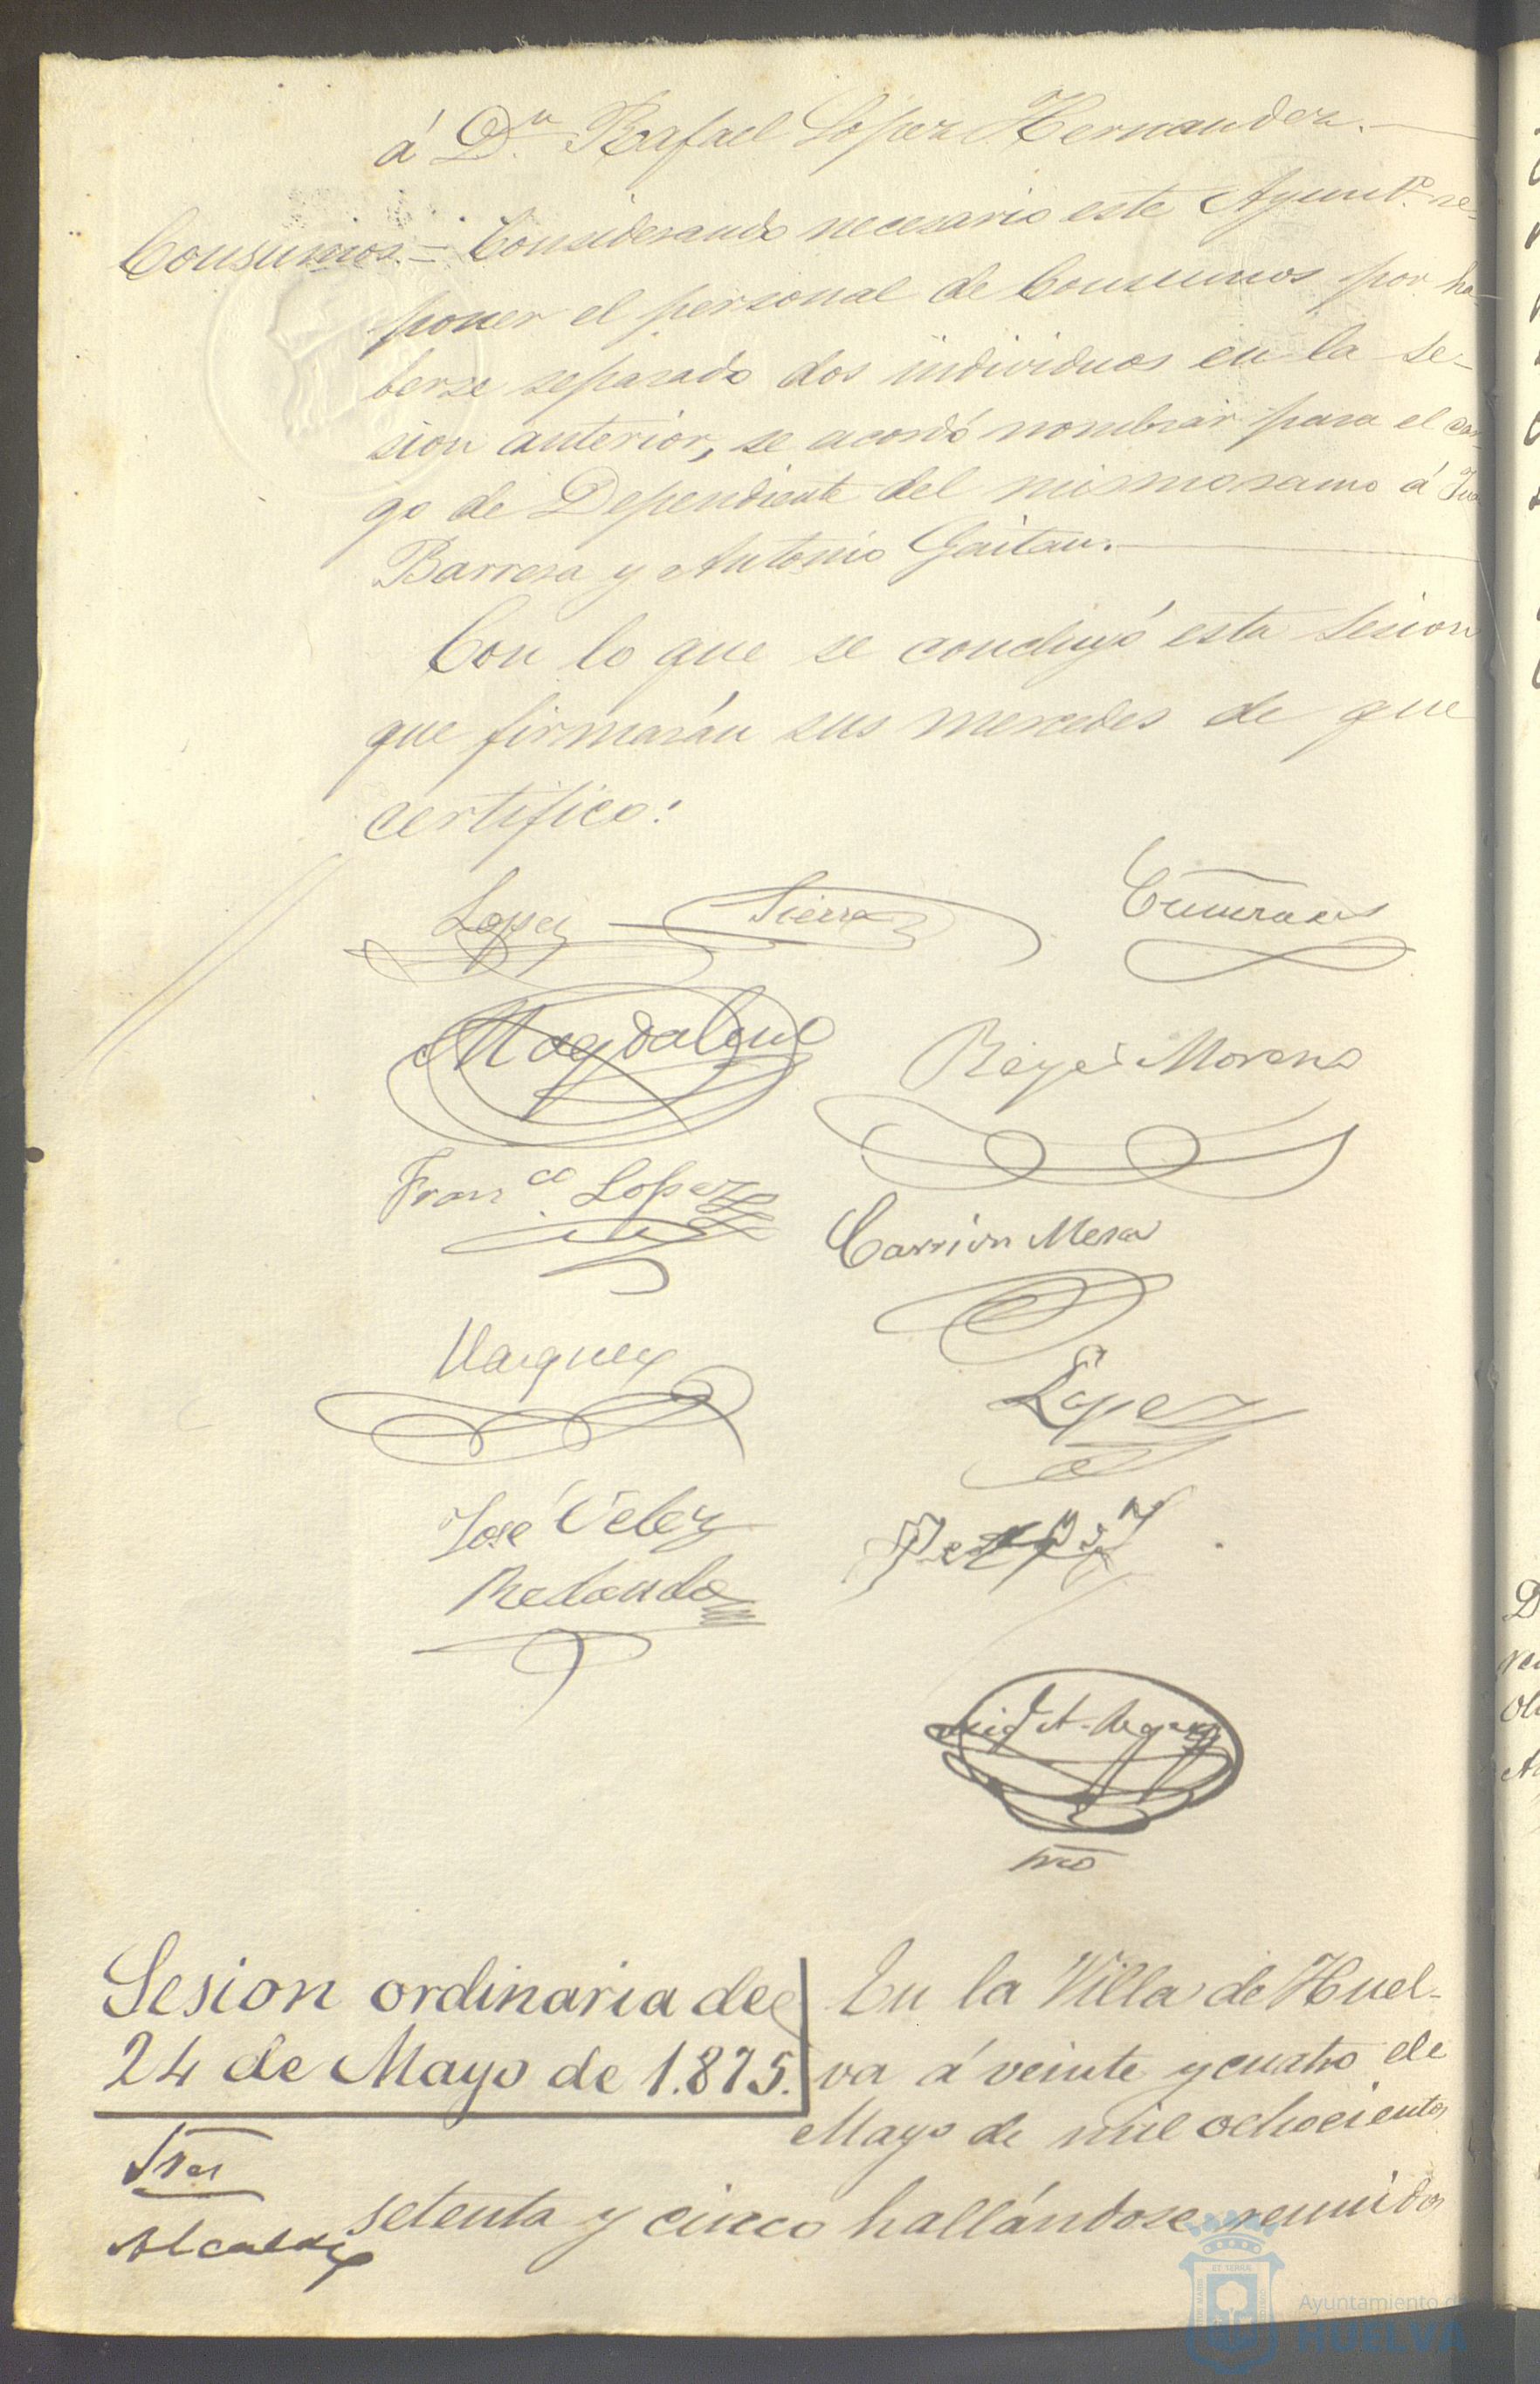 á D.n Rafael López Hernandez.
Consumos.= Considerando necesario este Ayunt.o re-
poner el personal de Consumos por ha-
berse separado dos individuos en la se-
sion anterior, se acordó nombrar para el car-
go de Dependiente del mismo ramo á
Barrera y Antonio Gaitan.
Con lo que se concluyó esta sesion
que firmarán sus mercedes de que
certifico:
Lopez Sierra
Magdalena Reyes Moreno
Franco Lopez
Carrion Mesa
Vazquez
Lopez
José Velez
Redondo
srio
Sesion ordinaria de
24 de Mayo de 1.875.
En la Villa de Huel-
va á veinte y cuatro de
Mayo de mil ochocientos
Sres
setenta y cinco hallándose reunidos
Alcalde
Ayuntamiento de
HUELVA